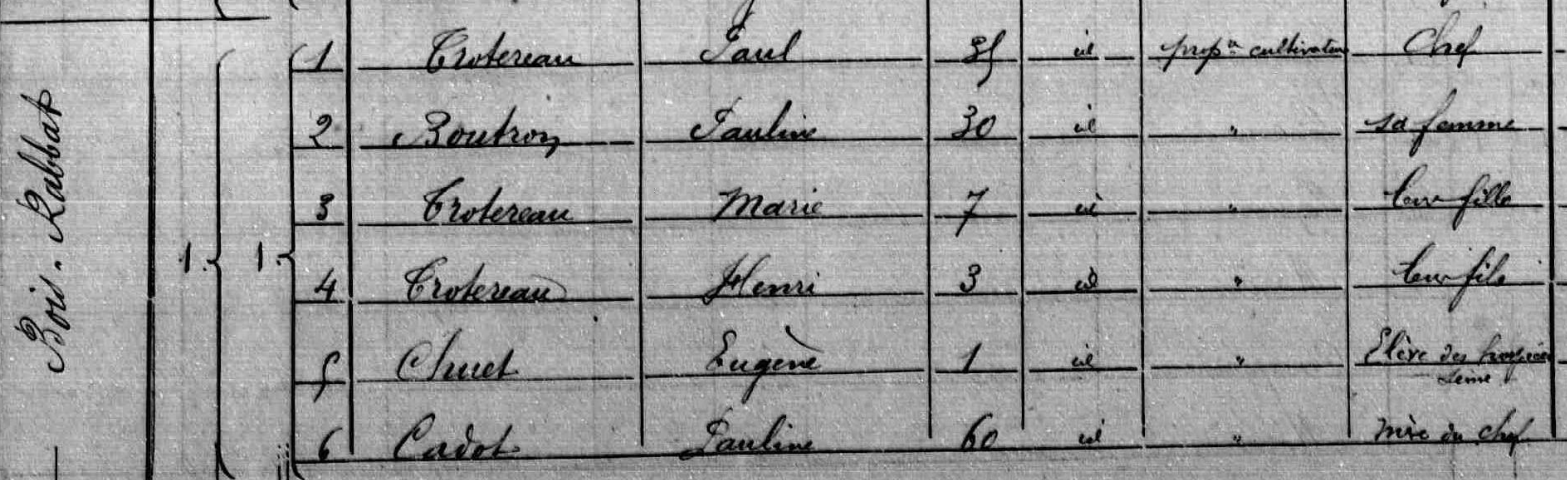 Bois-Rabbat
1 1 1 Trotereau Paul 35 id prop.re cultivateur Chef
2 Boutron Pauline 30 id " sa femme
3 Trotereau Marie 7 id " leur fille
4 Trotereau Henri 3 id " leur fils
5 Chuet Eugène 1 id " Elève des hospices
Seine
6 Cadot Pauline 60 id " mère du chef